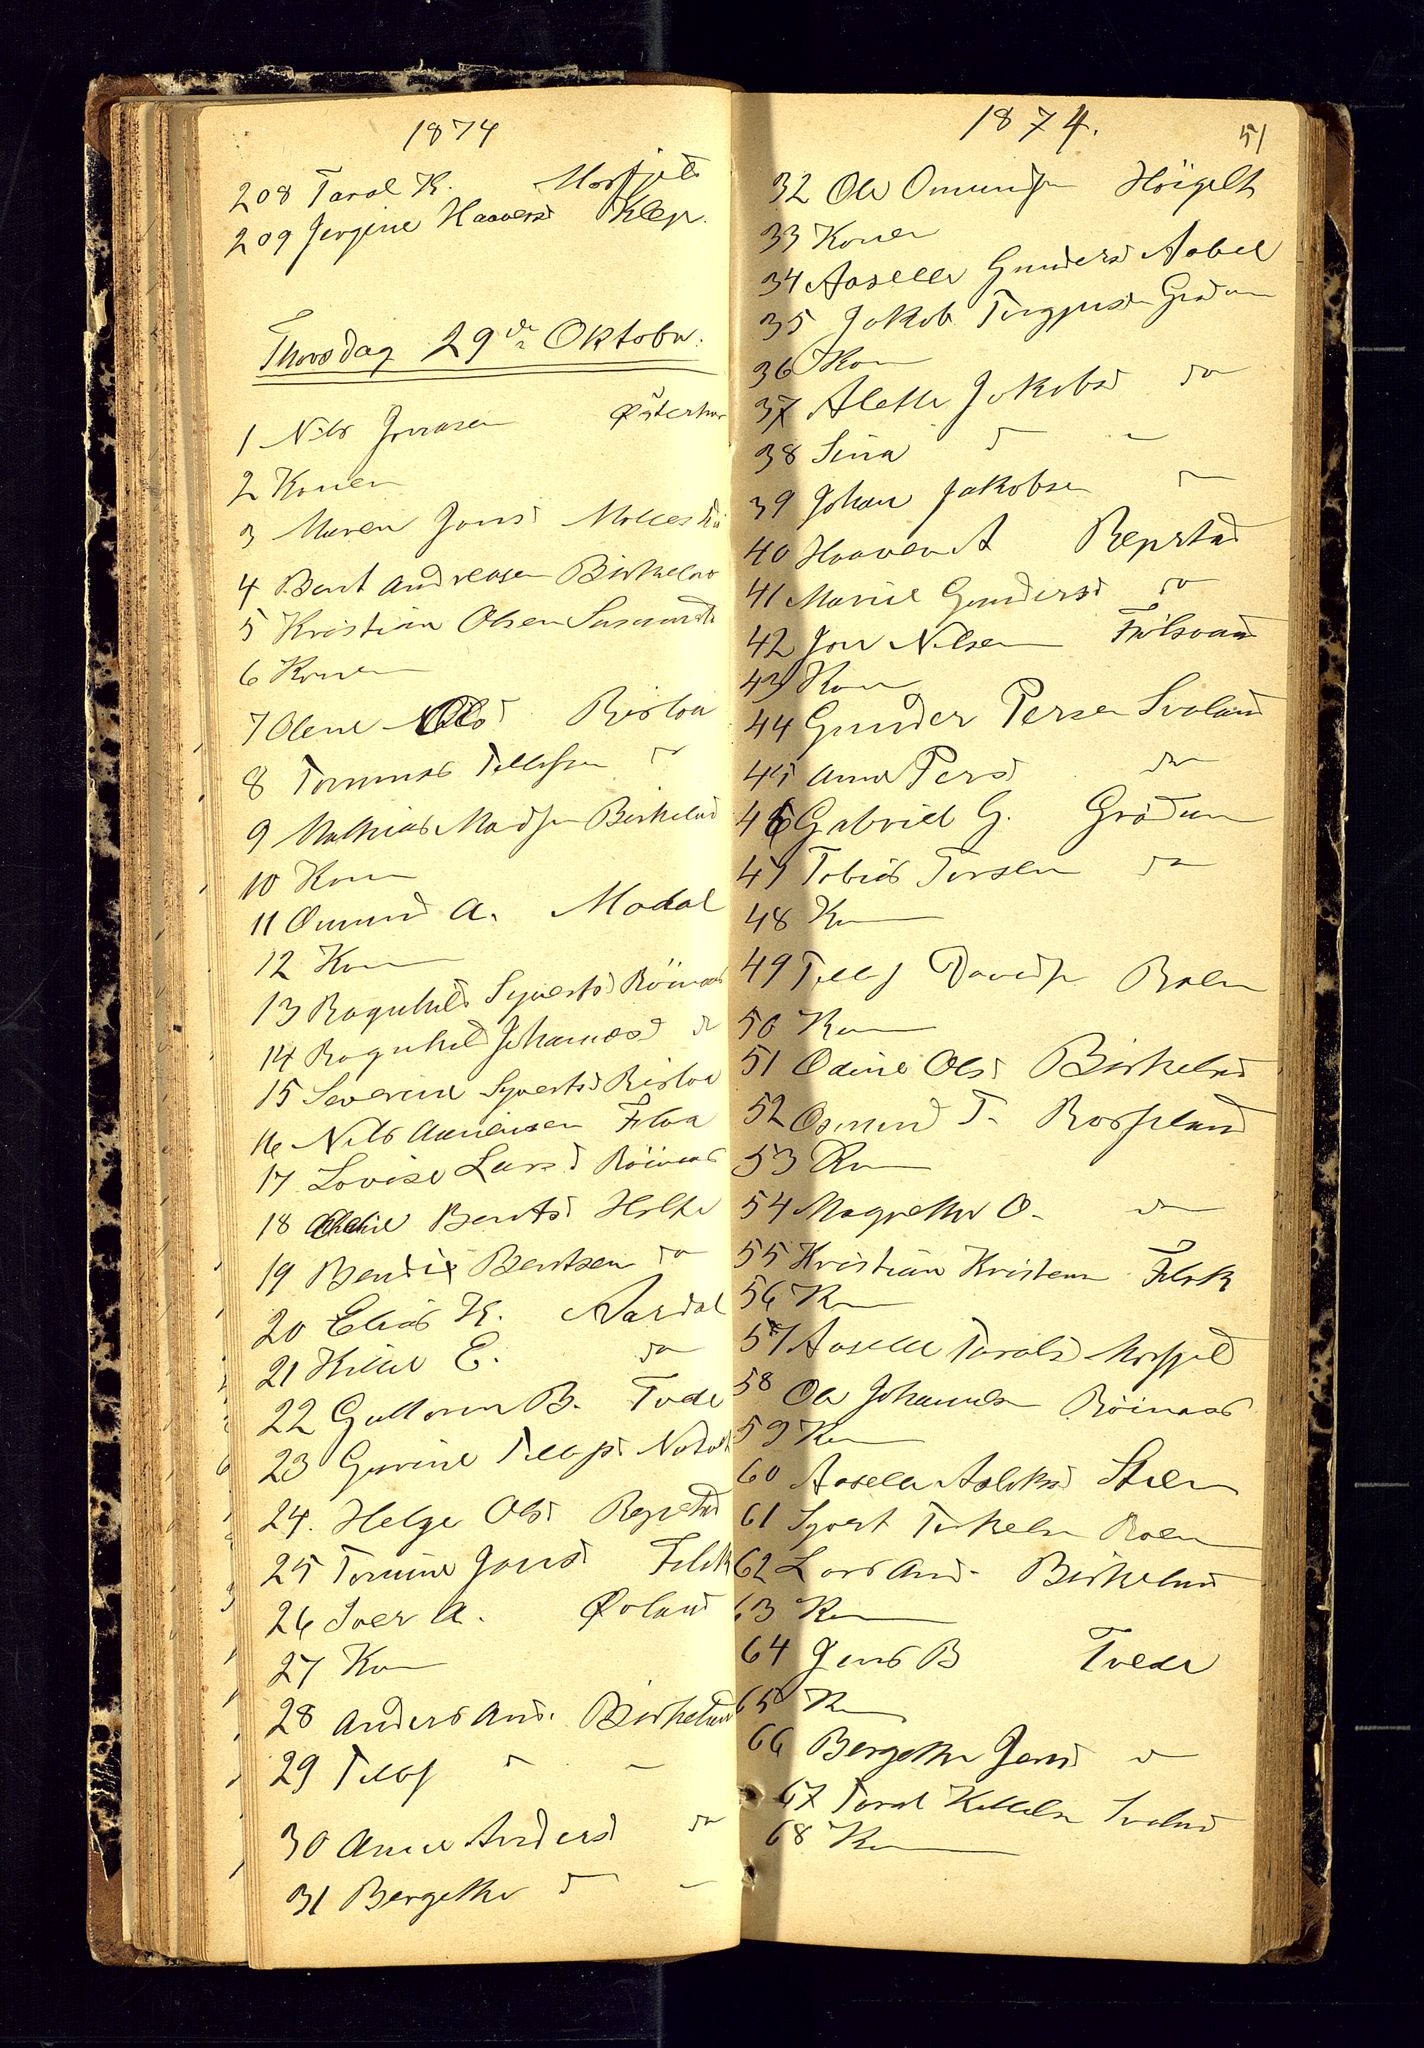 1874
208 Taral K. Mosfjeld
209 Jørgine Haavers d Klep.
Thorsdag 29de Oktober.
1 Nils Jonasen Østerhus
2 Konen
3 Maren Jons d
4 Bent Andreasen Birkeland
5 Kristian Olsen
6 Konen
7 Olene Nils d Risloa
8 Tommas Tellefsen do
9 Mathias Madsen Birkeland
10 Kone
11 Omund A. Modal
12 Kone
13 Ragnhild Syverts d Röinaas
14 Ragnhild Johannes d do
15 Severine Syverts d Risloa
16 Nils Floa
17 Lovise Lars d Röinaas
18 Bents d Holte
19 Bendix Bentsen do
20 Elias K. Aasdal
21 Kittil E. do
22 Guttorm B. Tvede
23 Gurine Tellefs d
24. Helge Ols d Repstad
25 Tomine Jons d Filsk
26 Iver A. Øvland
27 Kone
28 Anders And. Birkeland
29 Tellef d -
30 Anne Anders d do
31 Bergethe d -
1874. 51
32 Ole Omundsen Höigilt
33 Konen
34 Aaselle Gunders d Aabel
35 Jakob Torgjusen Grødum
36 Kone
37 Alette Jakobs d do
38 Sina d -
39 Johan Jakobsen -
40 Haaven A Repstad
41 Marie Gunders d do
42 Jon Nilsen
43 Kone
44 Gunder Persen Svaland
45 Anne Pers d do
46 Gabriel G. Grødum
47 Tobias Torsen do
48 Kone
49 Tellef Davidsen Roen
50 Kone
51 Odine Ols d Birkeland
52 Osmund T. Rosseland
53 Kone
54 Magrethe O. do
55 Kristian Kristensen Filsk
56 Kone
57 Aaselle Tarals d Mosfjeld
58 Ole Johannesen Röinaas
59 Kone
60 Aaselle Aslaks d Steen
61 Syvert Terkelsen Roen
62 Lars And. Birkeland
63 Kone
64 Jens B Tvede
65 Kone
66 Bergethe Jens d do
67 Taral Kittelsen Svaland
68 Kone